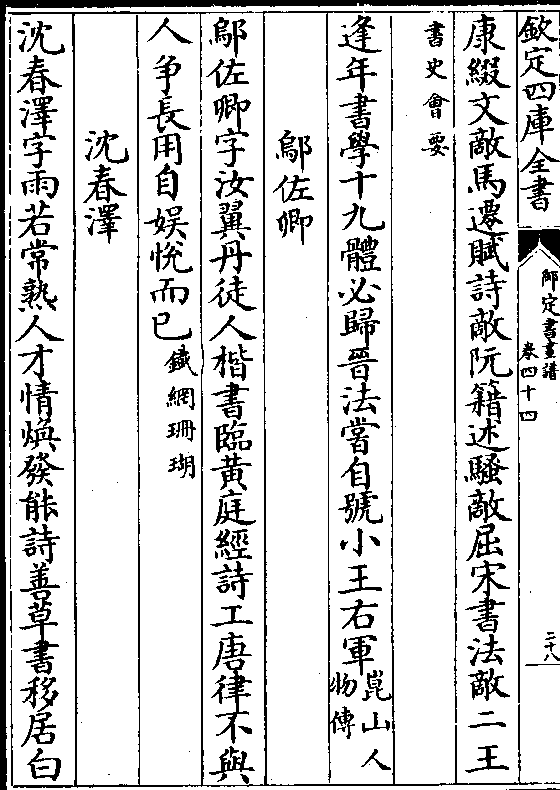 欽定四庫全書
御定書畫譜
卷四十四
二十八
康綴文敵馬遷賦詩敵阮籍述騷敵屈宋書法敵二王
書史會要
逢年書學十九體必歸晉法嘗自號小王右軍崑山人
物傳
鄔佐卿
鄔佐卿字汝翼丹徒人楷書臨黃庭經詩工唐律不與
人争長用自娱悅而已鐵網珊瑚
沈春澤
沈春澤字雨若常熟人才情焕發能詩善草書移居白